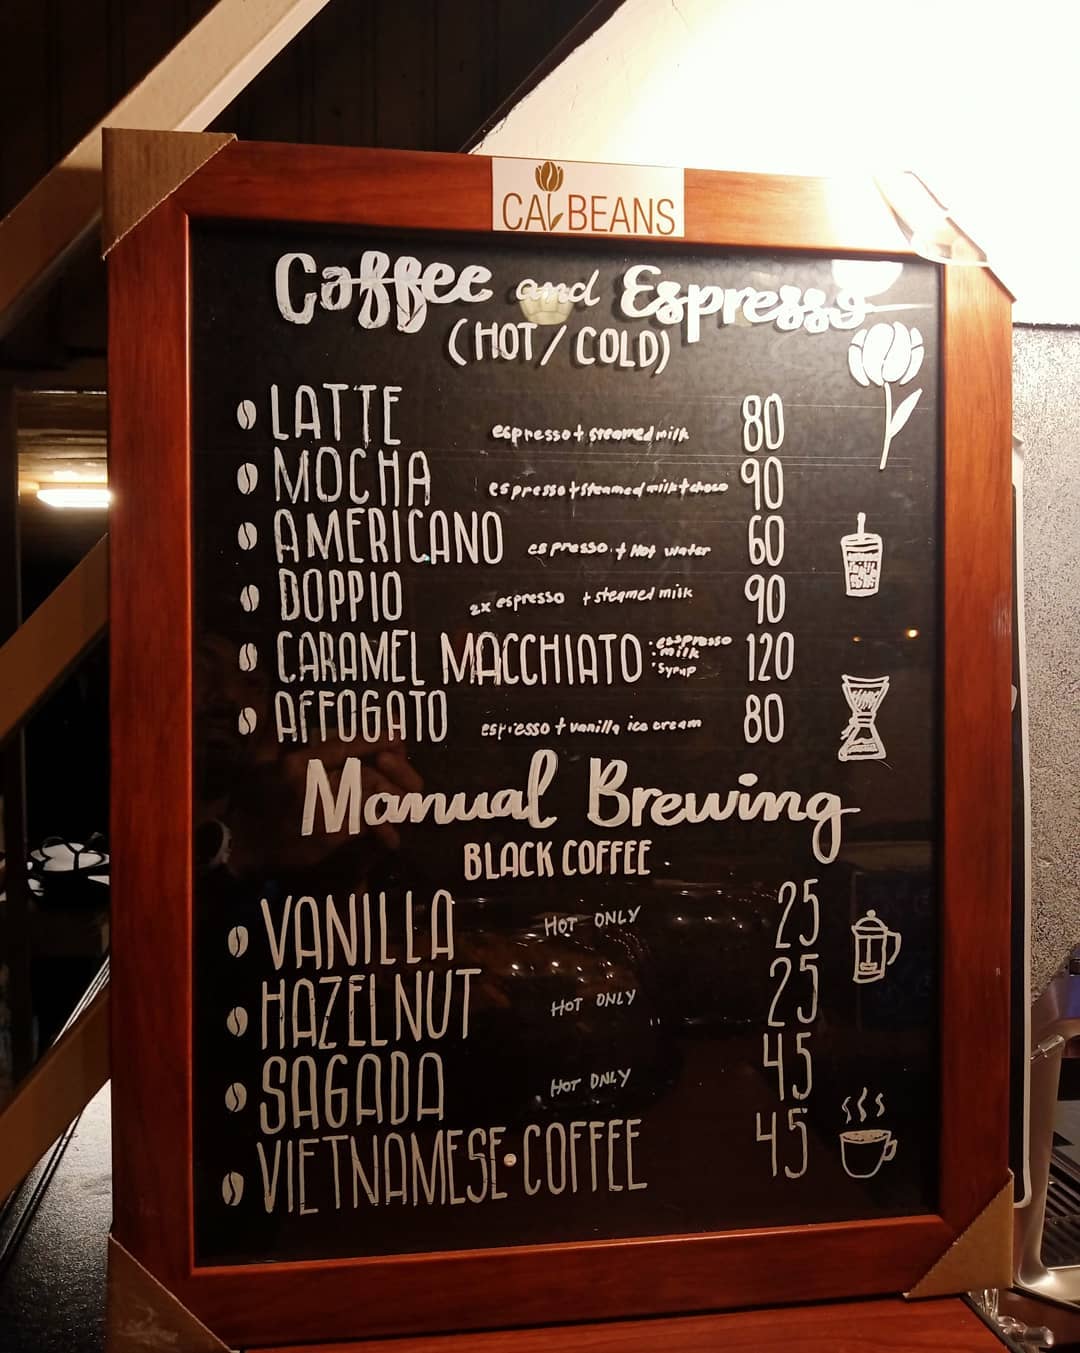 CALBEANS
Coffee and Espresso
(HOT/COLD)
LATTE espresso + steamed milk 80
MOCHA espresso + steamed milk + choco 90
AMERICANO espresso + Hot water 60
DOPPIO 2x espresso + steamed milk 90
CARAMEL MACCHIATO • espresso • milk • syrup 120
AFFOGATO espresso + vanilla ice cream 80
Manual Brewing
BLACK COFFEE
VANILLA HOT ONLY 25
HAZELNUT HOT ONLY 25
SAGADA HOT ONLY 45
VIETNAMESE COFFEE 45